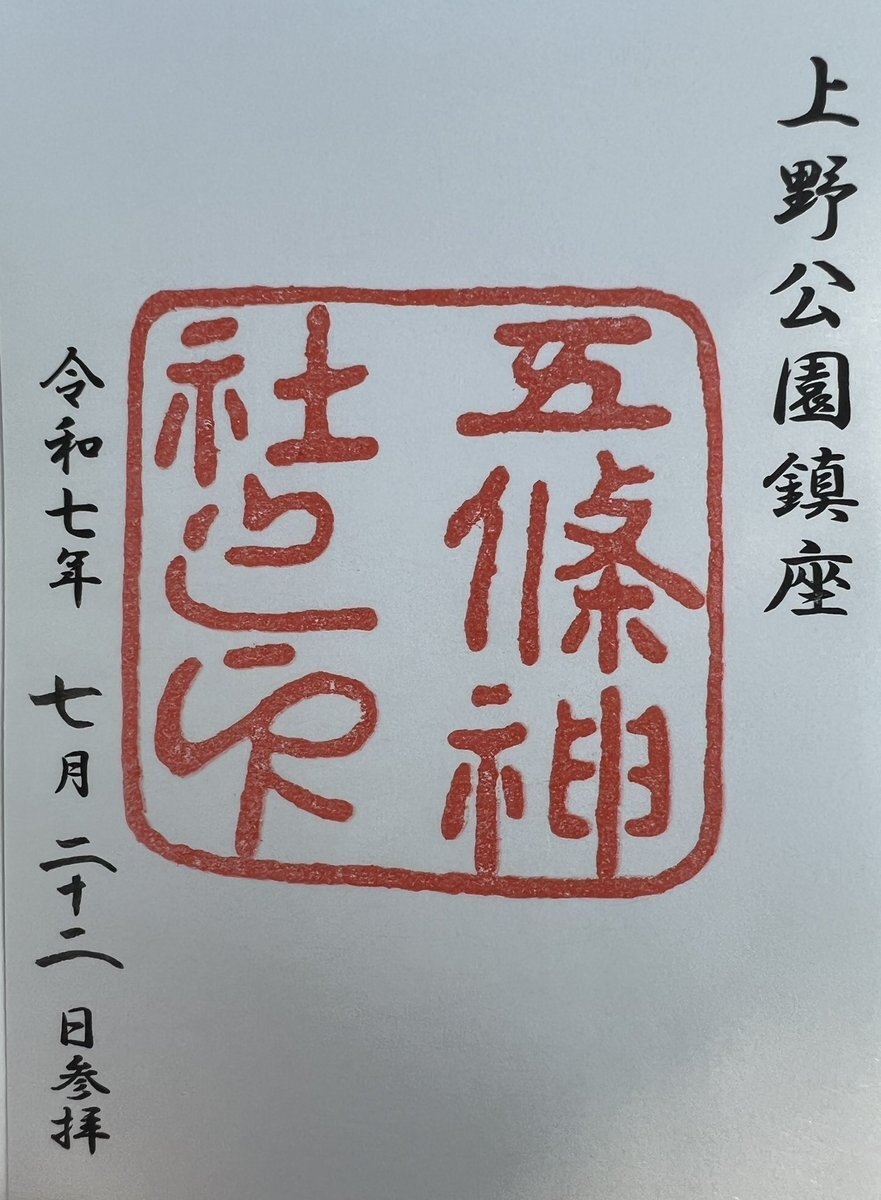 上野公園鎮座
五條神
社之印
令和七年 七月 二十二 日参拝